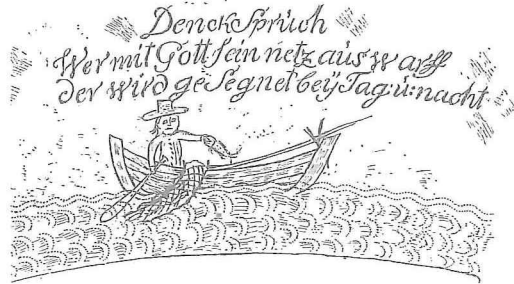 Denck Spruch
Wer mit Gott sein netz aus warff
der wird ge Segnet beÿ Tag: ü: nacht